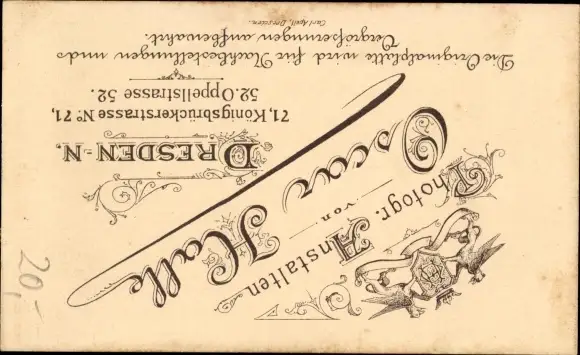 Photogr. Anstalten
von
Oscar Halle
DRESDEN-N.
71, Königsbrückerstrasse No. 71,
52. Oppellstrasse 52.
Die Originalplatte wird für Nachbestellungen und
Vergrößerungen aufbewahrt.
20,-